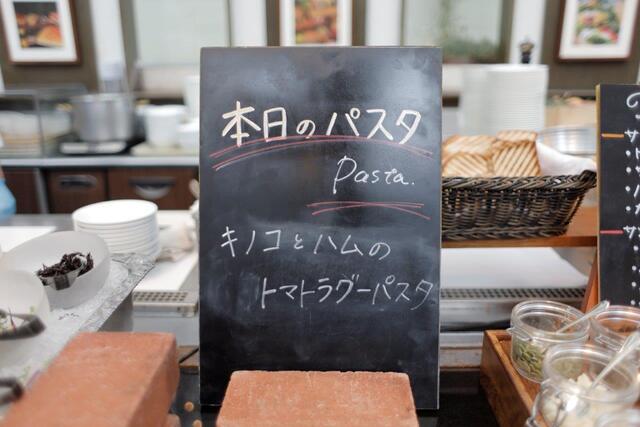 本日のパスタ
Pasta.
キノコとハムの
トマトラグーパスタ